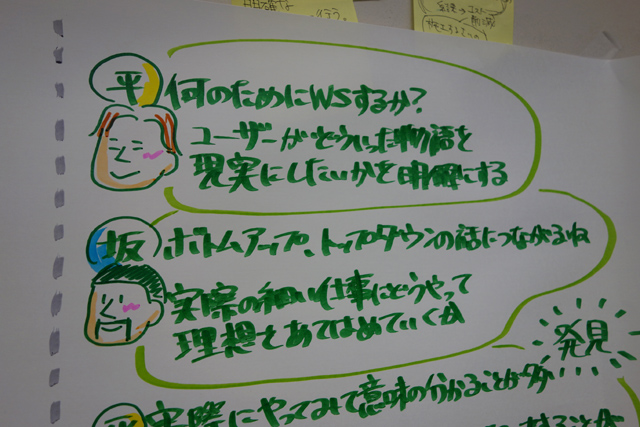 平
何のためにWSするか?
ユーザーがどういった物語を
現実にしたいかを明確にする
坂
ボトムアップ、トップダウンの話につながるね
実際の細い仕事にどうやって
理想をあてはめていくか
発見
平
実際にやってみて意味の分かることが多